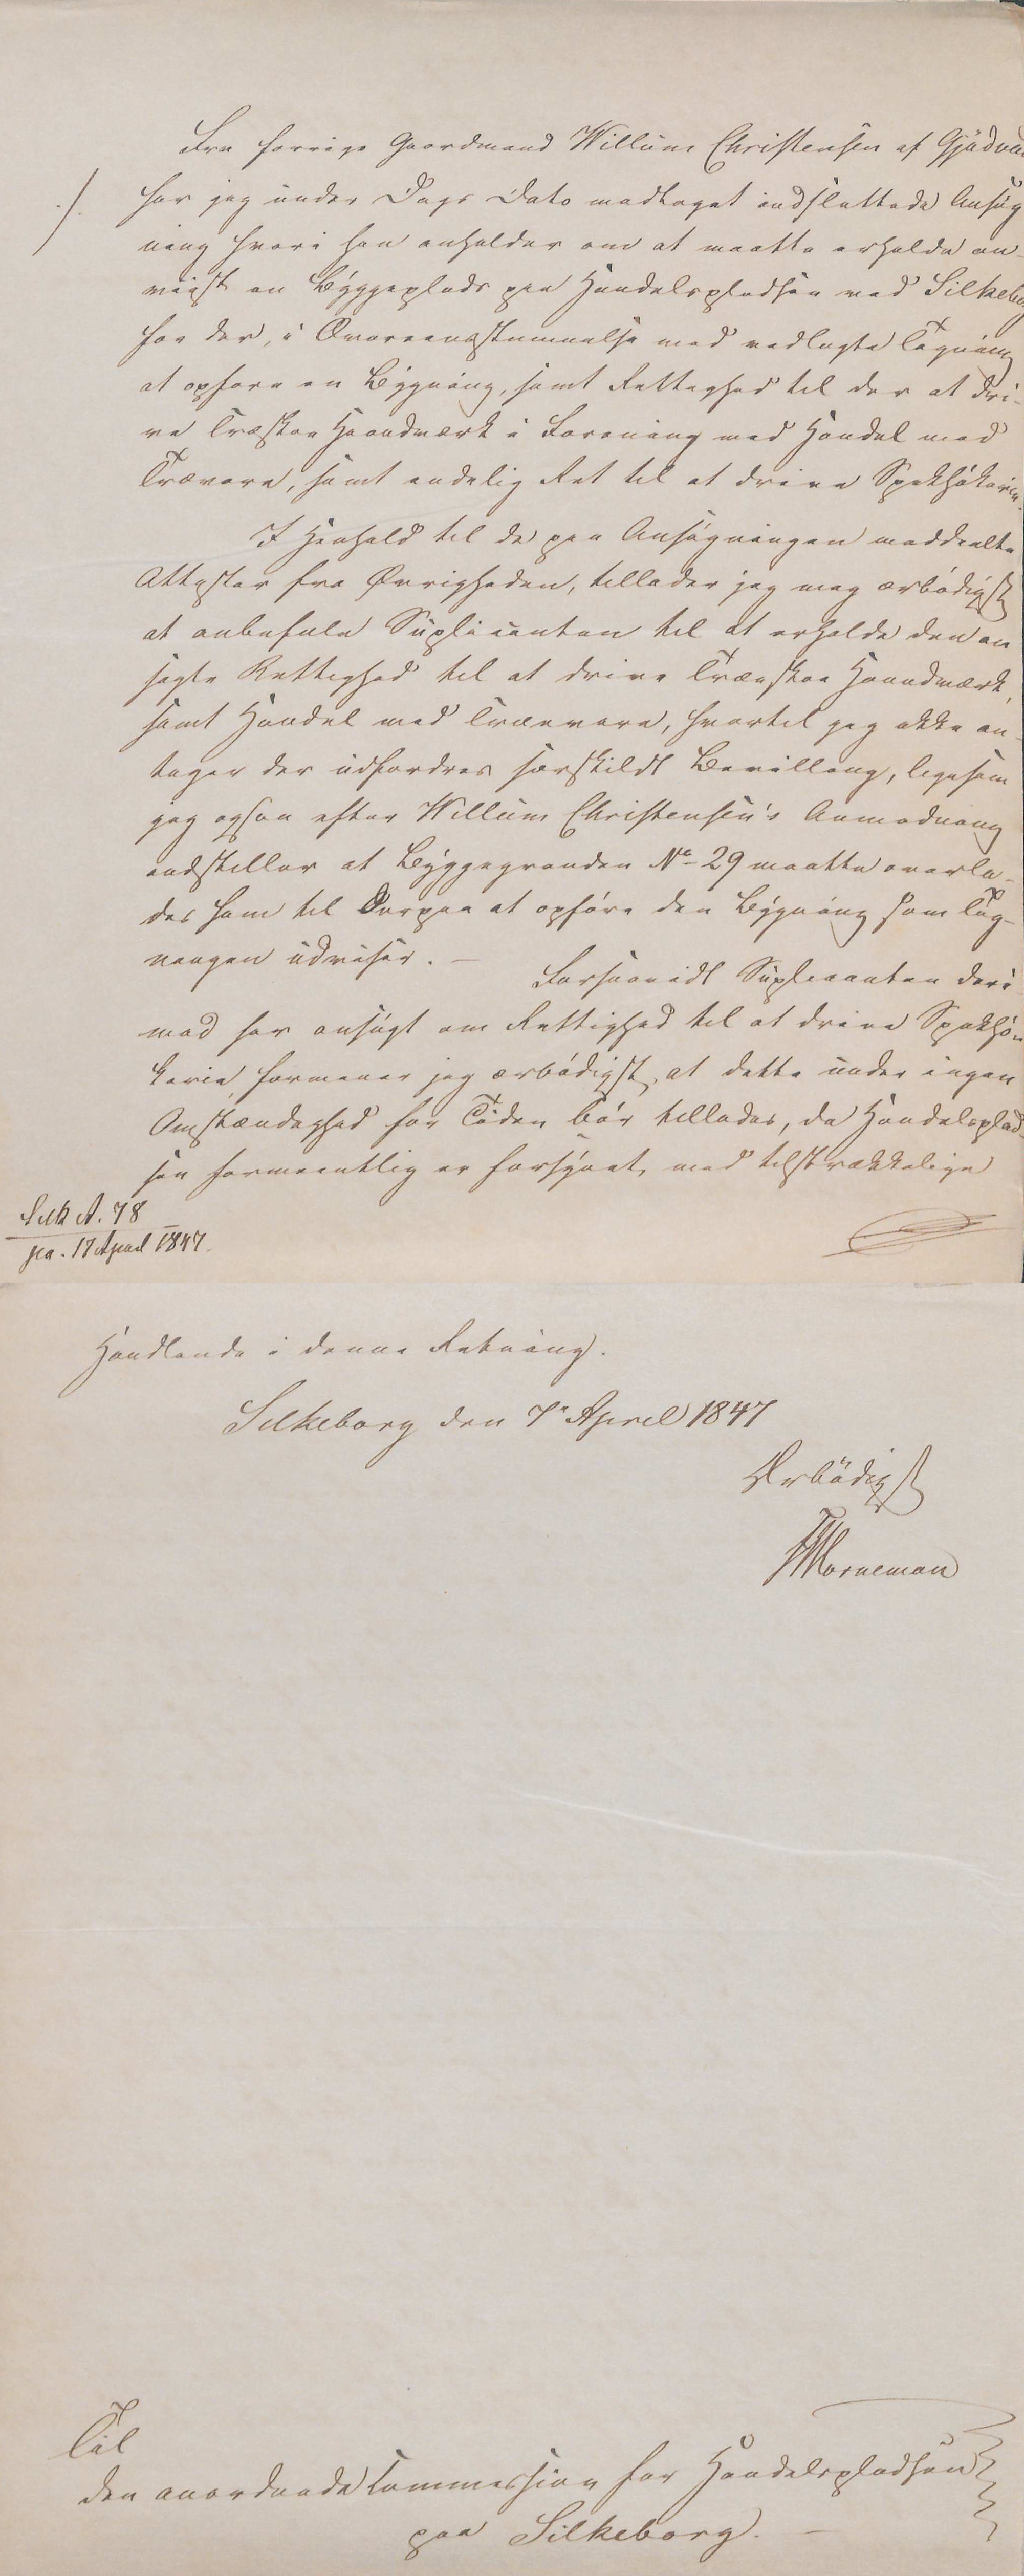 Fra forrige Gaardmand Willum Christensen af Gjödvad
./. har jeg under Dags Dato modtaget indsluttede Ansög
ning hvori han anholder om at maatte erholde an-
viist en Byggeplads paa Handelspladsen ved Silkeborg
for der, i Overeensstemmelse med vedlagte Tegning
at opføre en Bygning, samt Rettighed til der at dri-
ve Træskoe Haandværk i Forening med Handel med
Trævare, samt endelig Ret til at drive Spekhökerie.
I Henhold til de paa Ansøgningen meddeelte
Attester fra Øvrigheden, tillader jeg mig ærbödigst
at anbefale Suplicanten til at erholde den an
søgte Rettighed til at drive Træeskoe Haandværk,
samt Handel med Træevare, hvortil jeg ikke an-
tager der udfordres særskildt Bevilling, ligesom
jeg ogsaa efter Willum Christensen's Anmodning
indstiller at Byggegrunden No 29 maatte overla-
des ham til Derpaa at opföre den Bygning som Teg-
ningen udviser. —
Forsaavidt Suplicanten deri-
mod har ansøgt om Rettighed til at drive Spekhö-
kerie, formener jeg ærbödigst, at dette under ingen
Omstændighed for Tiden bör tillades, da Handelsplad-
sen formeentlig er forsynet, med tilstrækkelige
Silk A. 78
pr. 17 April 1847.
Handlende i denne Retning.
Silkeborg den 7e April 1847
Ærbödigst
Worneman
Til
den anordnede Commission for Handelspladsen
paa Silkeborg. —